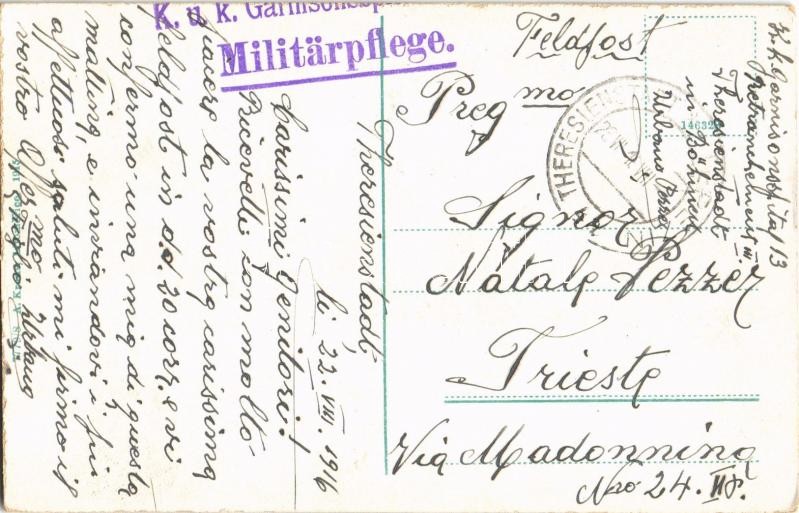 K. u. k. Garnisonsspi
Militärpflege.
Theresienstadt,
li, 22. VIII. 1916
Carissimi Genitori!
Ricevetti con molto
piacere la vostra carissima
feldpost in d.d. 20 corr. e vi
confermo una mia di questa
mattina, e inviandovi i più
affettuosi saluti mi firmo il
vostro affez.mo
figlio Urbano
Feldpost
Preg mo
Signor
Natale Pezzer
Trieste
Via Madonnina
Nro 24. II p.
K. k. Garnisonspital 13
Theresienstadt
in Böhmen
Urbano Pezzer
THERESIENSTADT
14632